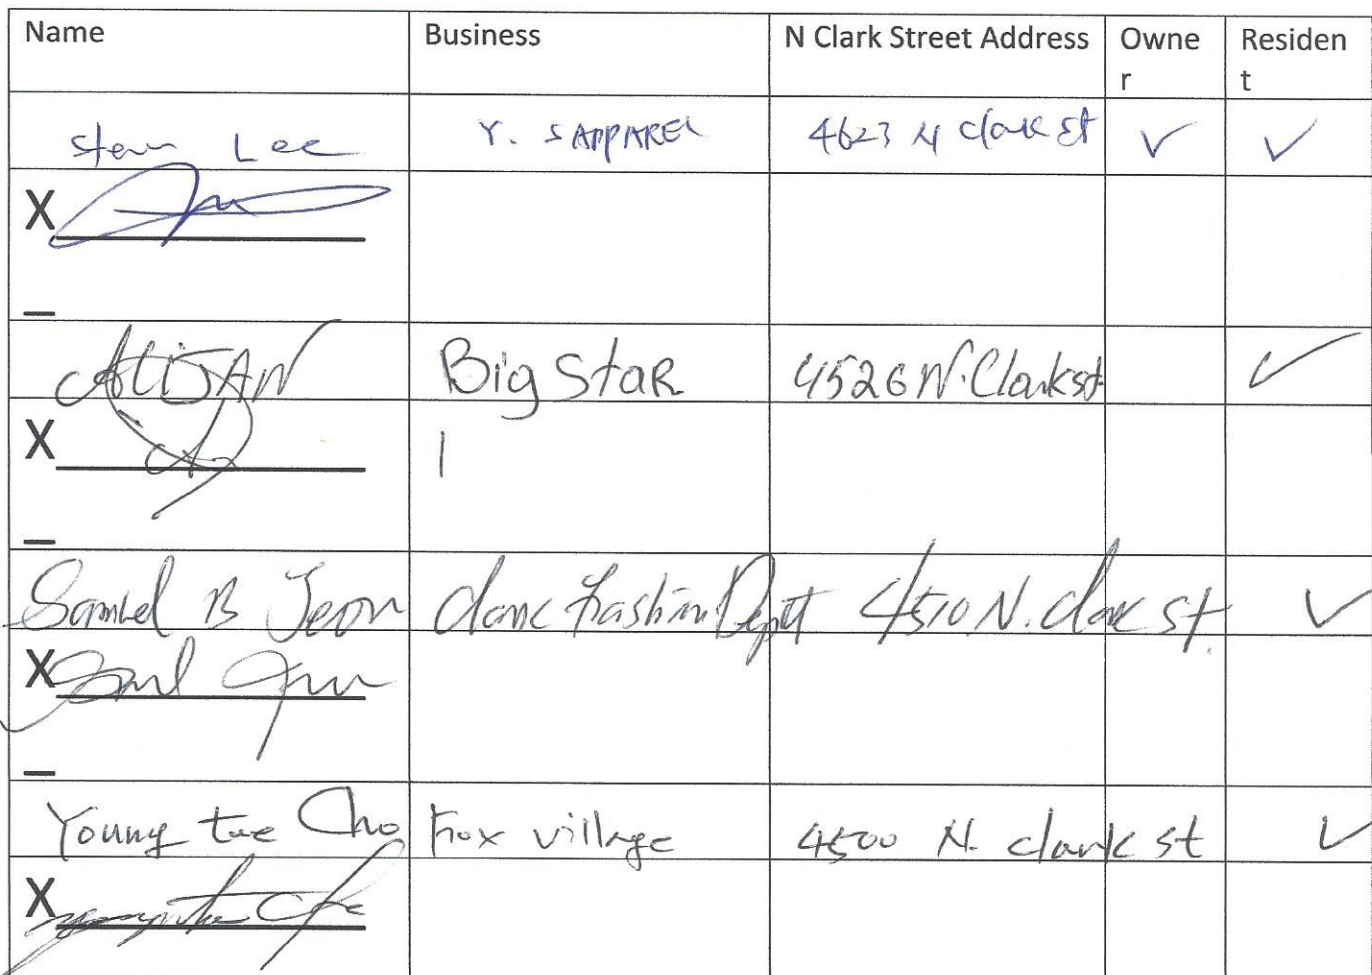 Name Business N Clark Street Address Owne Residen
r t
Lee Y. S APPAREL 4623 N Clark St ✓ ✓
X
ALIJAN Big Star 4526 N. Clark st ✓
X |
Samuel B Jeon Fashion 4510 N. Clark St. ✓
X
Young tae Cho Fox village 4500 N. Clark st ✓
X